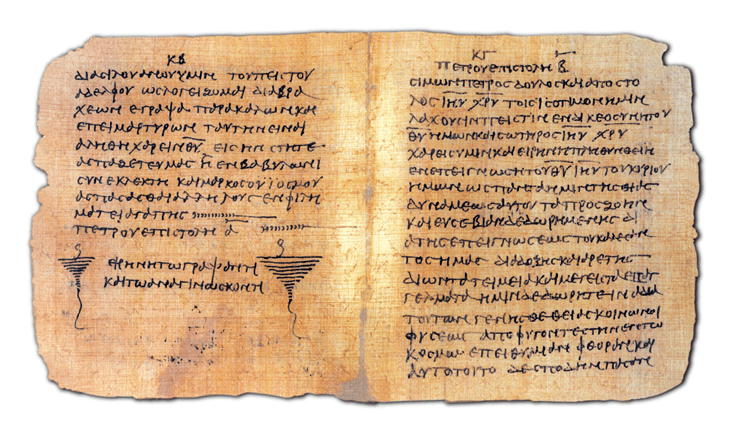 ΚΒ
ΔΙΑ ϹΙΛΟΥΑΝΟΥ ΥΜΙΝ ΤΟΥ ΠΕΙϹΤΟΥ
ΑΔΕΛΦΟΥ ΩϹ ΛΟΓΕΙΖΟΜΑΙ ΔΙΑ ΒΡΑ
ΧΕΩΝ ΕΓΡΑΨΑ ΠΑΡΑΚΑΛΩΝ ΚΑΙ
ΕΠΕΙΜΑΡΤΥΡΩΝ ΤΑΥΤΗΝ ΕΙΝΑΙ
ΑΛΗΘΗ ΧΑΡΕΙΝ Θ̅Υ̅ ΕΙϹ ΗΝ ϹΤΗΤΕ
ΑϹΠΑΖΕΤΕ ΥΜΑϹ Η ΕΝ ΒΑΒΥΛΩΝΙ
ϹΥΝΕΚΛΕΚΤΗ ΚΑΙ ΜΑΡΚΟϹ Ο ΥΙΟϹ ΜΟΥ
ΑϹΠΑϹΑϹΘΑΙ ΑΛΛΗΛΟΥϹ ΕΝ ΦΙΛΗ
ΜΑΤΕΙ ΑΓΑΠΗϹ
ΠΕΤΡΟΥ ΕΠΙϹΤΟΛΗ Α̅
ΕΙΡΗΝΗ ΤΩ ΓΡΑΨΑΝΤΙ
ΚΑΙ ΤΩ ΑΝΑΓΙΝΩϹΚΟΝΤΙ
ΚΓ
ΠΕΤΡΟΥ ΕΠΙϹΤΟΛΗ Β̅
ϹΙΜΩΝ ΠΕΤΡΟϹ ΔΟΥΛΟϹ ΚΑΙ ΑΠΟϹΤΟ
ΛΟϹ Ι̅Η̅Υ̅ Χ̅Ρ̅Υ̅ ΤΟΙϹ ΙϹΟΤΙΜΟΝ ΗΜΙΝ
ΛΑΧΟΥϹΙΝ ΠΕΙϹΤΙΝ ΕΝ ΔΙΚΕΟϹΥΝΗ ΤΟΥ
Θ̅Υ̅ ΗΜΩΝ ΚΑΙ ϹΩΤΗΡΟϹ Ι̅Η̅Υ̅ Χ̅Ρ̅Υ̅
ΧΑΡΕΙϹ ΥΜΙΝ ΚΑΙ ΕΙΡΗΝΗ ΠΛΗΘΥΝΘΕΙΗ
ΕΝ ΕΠΕΙΓΝΩϹΗ ΤΟΥ Θ̅Υ̅ Ι̅Η̅Υ̅ ΤΟΥ ΚΥΡΙΟΥ
ΗΜΩΝ ΩϹ ΠΑΝΤΑ ΗΜΙΝ ΤΗϹ ΘΕΙΑϹ
ΔΥΝΑΜΕΩϹ ΑΥΤΟΥ ΤΑ ΠΡΟϹ ΖΩΗΝ
ΚΑΙ ΕΥϹΕΒΙΑΝ ΔΕΔΩΡΗΜΕΝΗϹ ΔΙ
Α ΤΗϹ ΕΠΕΙΓΝΩϹΕΩϹ ΤΟΥ ΚΑΛΕϹΑΝ
ΤΟϹ ΗΜΑϹ ΔΙΑ ΔΟΞΗϹ ΚΑΙ ΑΡΕΤΗϹ
ΔΙ ΩΝ ΤΑ ΤΕΙΜΙΑ ΚΑΙ ΜΕΓΕΙϹΤΑ ΕΠΑΓ
ΓΕΛΜΑΤΑ ΗΜΙΝ ΔΕΔΩΡΗΤΕ ΙΝΑ ΔΙΑ
ΤΟΥΤΩΝ ΓΕΝΗϹΘΕ ΘΕΙΑϹ ΚΟΙΝΩΝΟΙ
ΦΥϹΕΩϹ ΑΠΟΦΥΓΟΝΤΕϹ ΤΗΝ ΕΝ ΤΩ
ΚΟϹΜΩ ΕΠΕΙΘΥΜΙΑΝ ΦΘΟΡΑϹ ΚΑΙ
ΑΥΤΟ ΤΟΥΤΟ ΔΕ ϹΠΟΔΗΝ ΠΑϹΑΝ